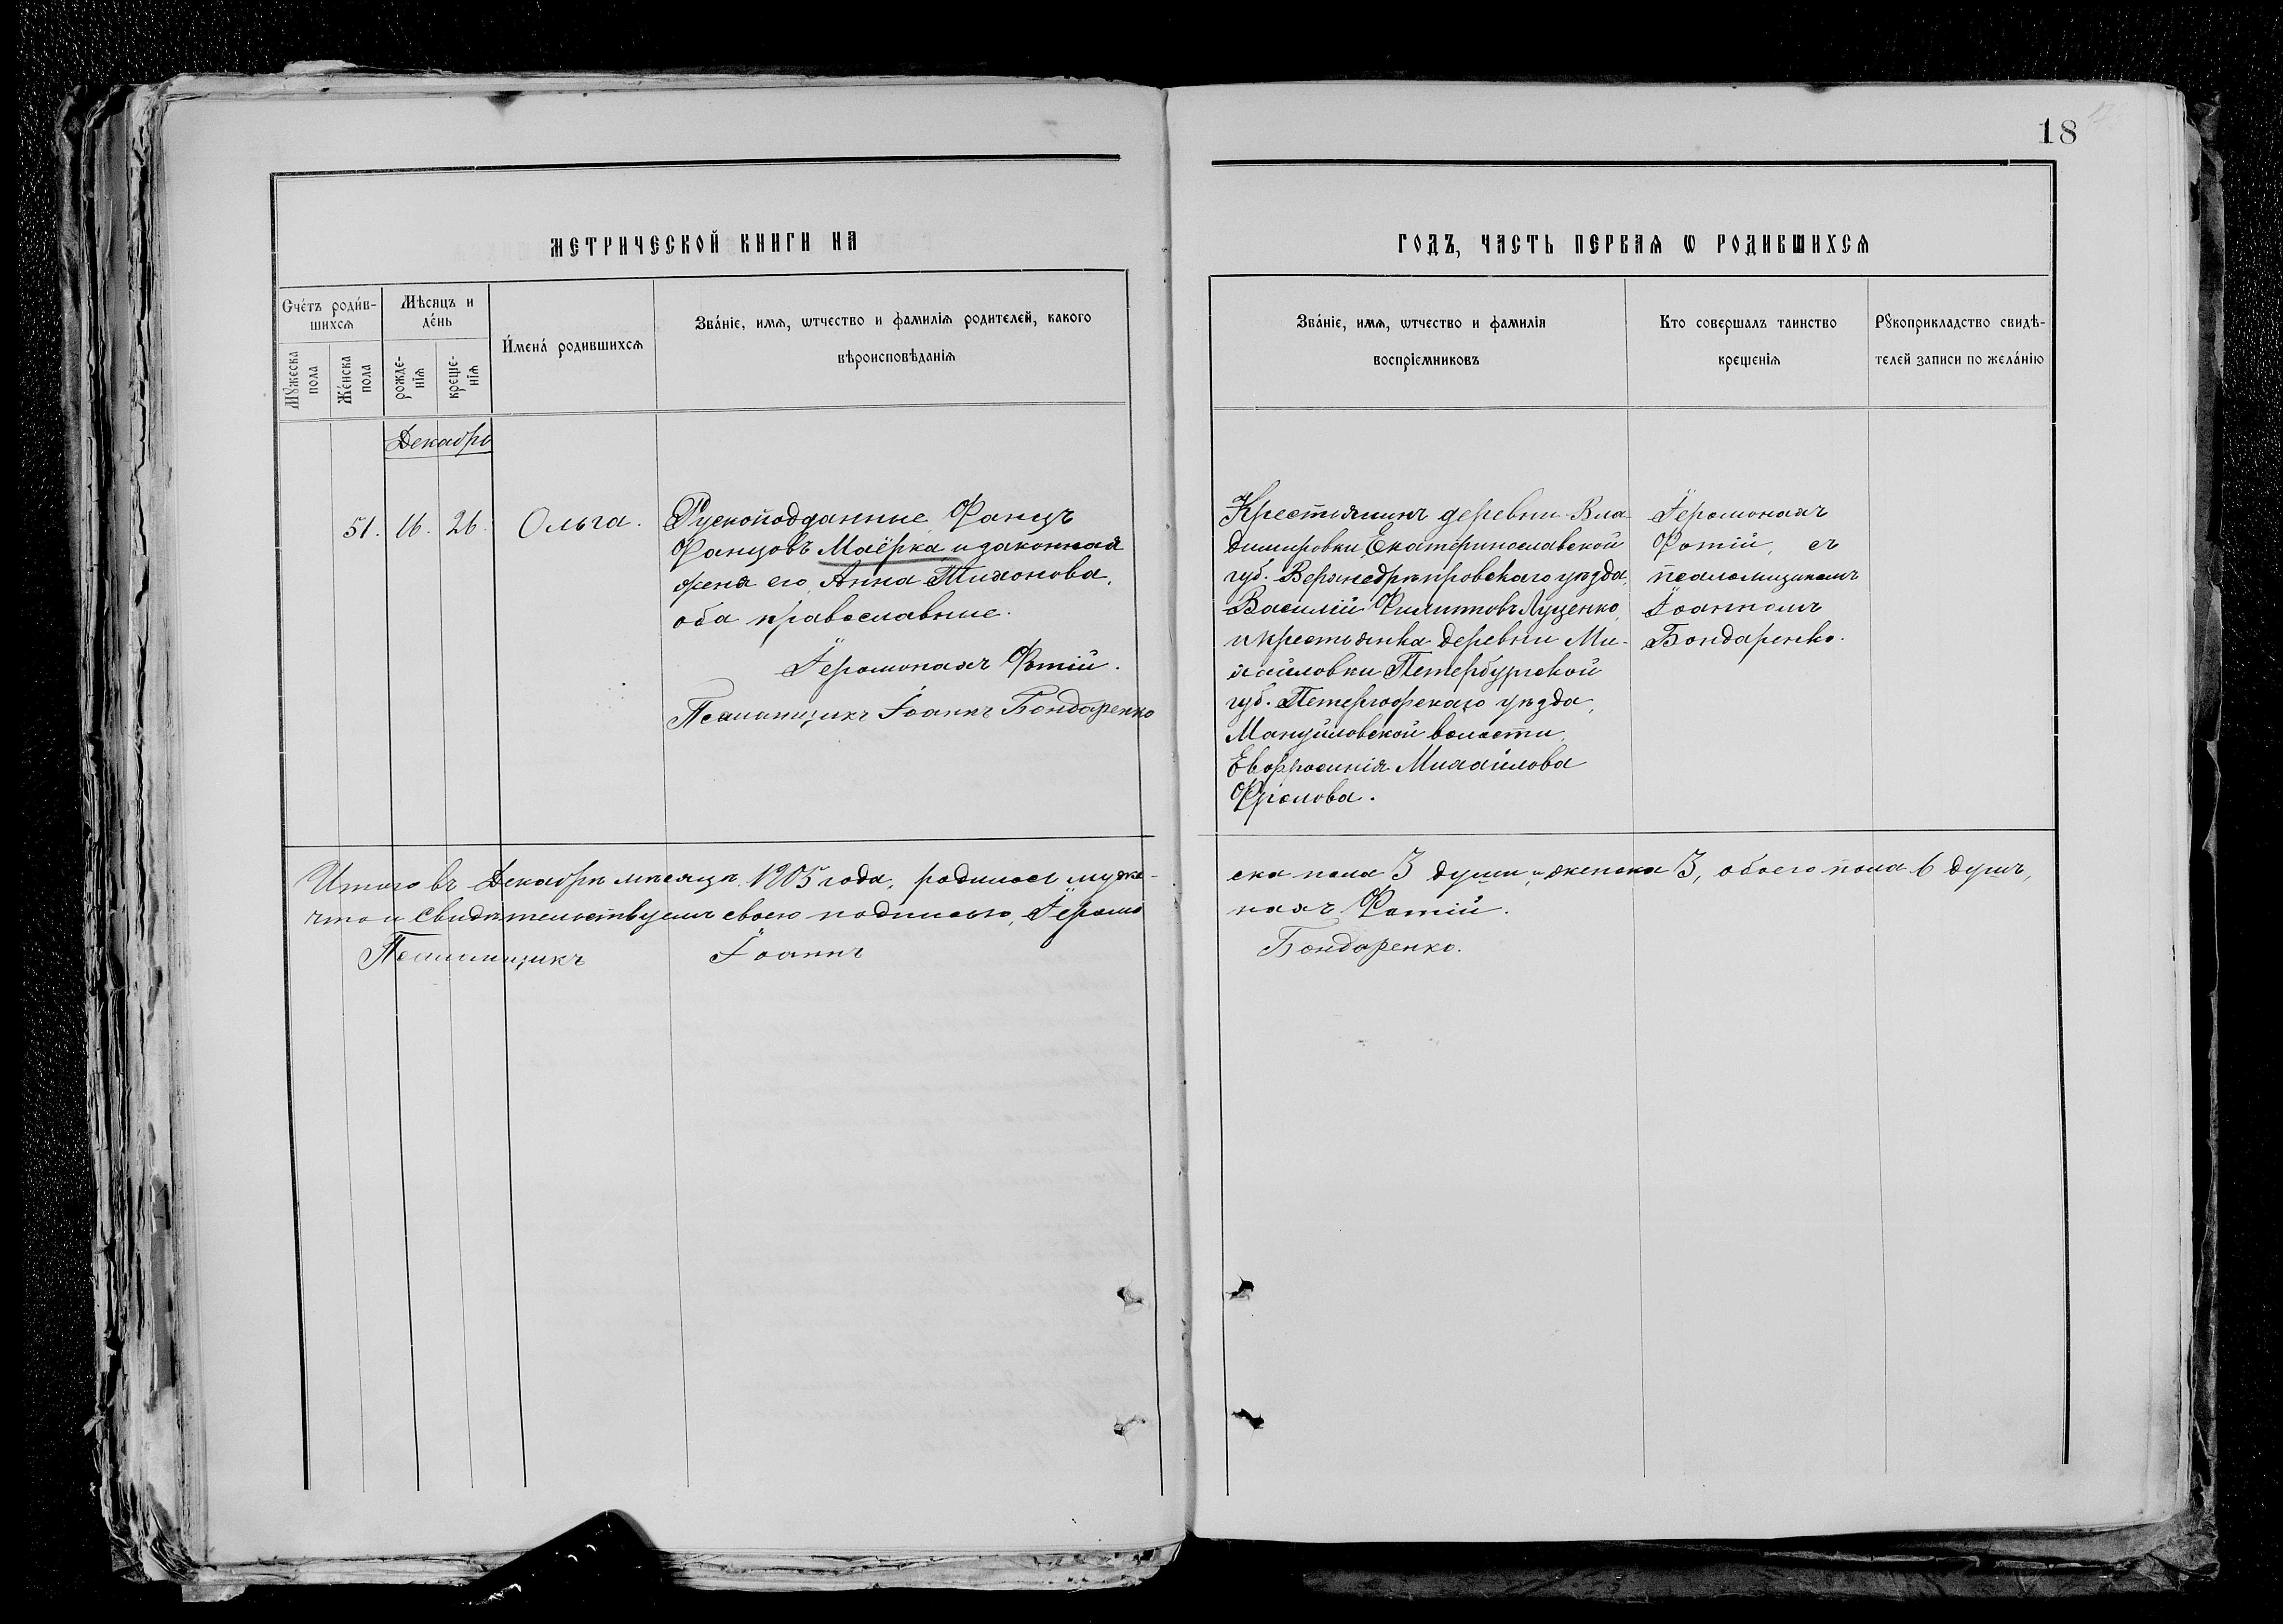 18
МЕТРИЧЕСКОЙ КНИГИ НА
ГОДЪ, ЧАСТЬ ПЕРВАѦ Ѡ РОДИВШИХСѦ
Счéтъ роди́в-
шихсѧ
Мꙋжеска пола
Жéнска пола
Мѣсяцъ и
дéнь
рожде-
нїѧ
креще-
нїѧ
И́мена́ родившихсѧ
Зва́нїе, имѧ, ѡтчество и фамилїѧ родителей, какого
вѣроисповѣданїѧ
Зва́нїе, имѧ, ѡтчество и фамилїѧ
воспрїемниковъ
Кто совершалъ таинство
крещенїѧ
Рꙋкоприкладство свидѣ-
телей записи по жела́нїю
Декабрь
51.
16.
26.
Ольга.
Рускоподданные Францъ
Францовъ Маёрка и законная
жена его, Анна Тихонова,
оба православные.
Іеромонахъ Фотій.
Псаломщикъ Іоаннъ Бондаренко
Крестьянинъ деревни Вла-
димировки, Екатеринославской
губ. Верхнеднѣпровскаго уѣзда,
Василій Филипповъ Луценко,
и крестьянка деревни Ми-
хайловки Петербургской
губ. Петергофскаго уѣзда,
Мануйловской волости,
Евфросинія Михайлова
Фролова.
Іеромонахъ
Фотій, съ
псаломщикомъ
Іоанномъ
Бондаренко.
Итого въ Декабрѣ мѣсяцѣ 1905 года, родилось муже-
ска пола 3 души, и женска 3, обоего пола 6 душъ,
что и свидѣтельствуемъ своею подписью, Іеромо
нахъ Фотій.
Псаломщикъ Іоаннъ
Бондаренко.